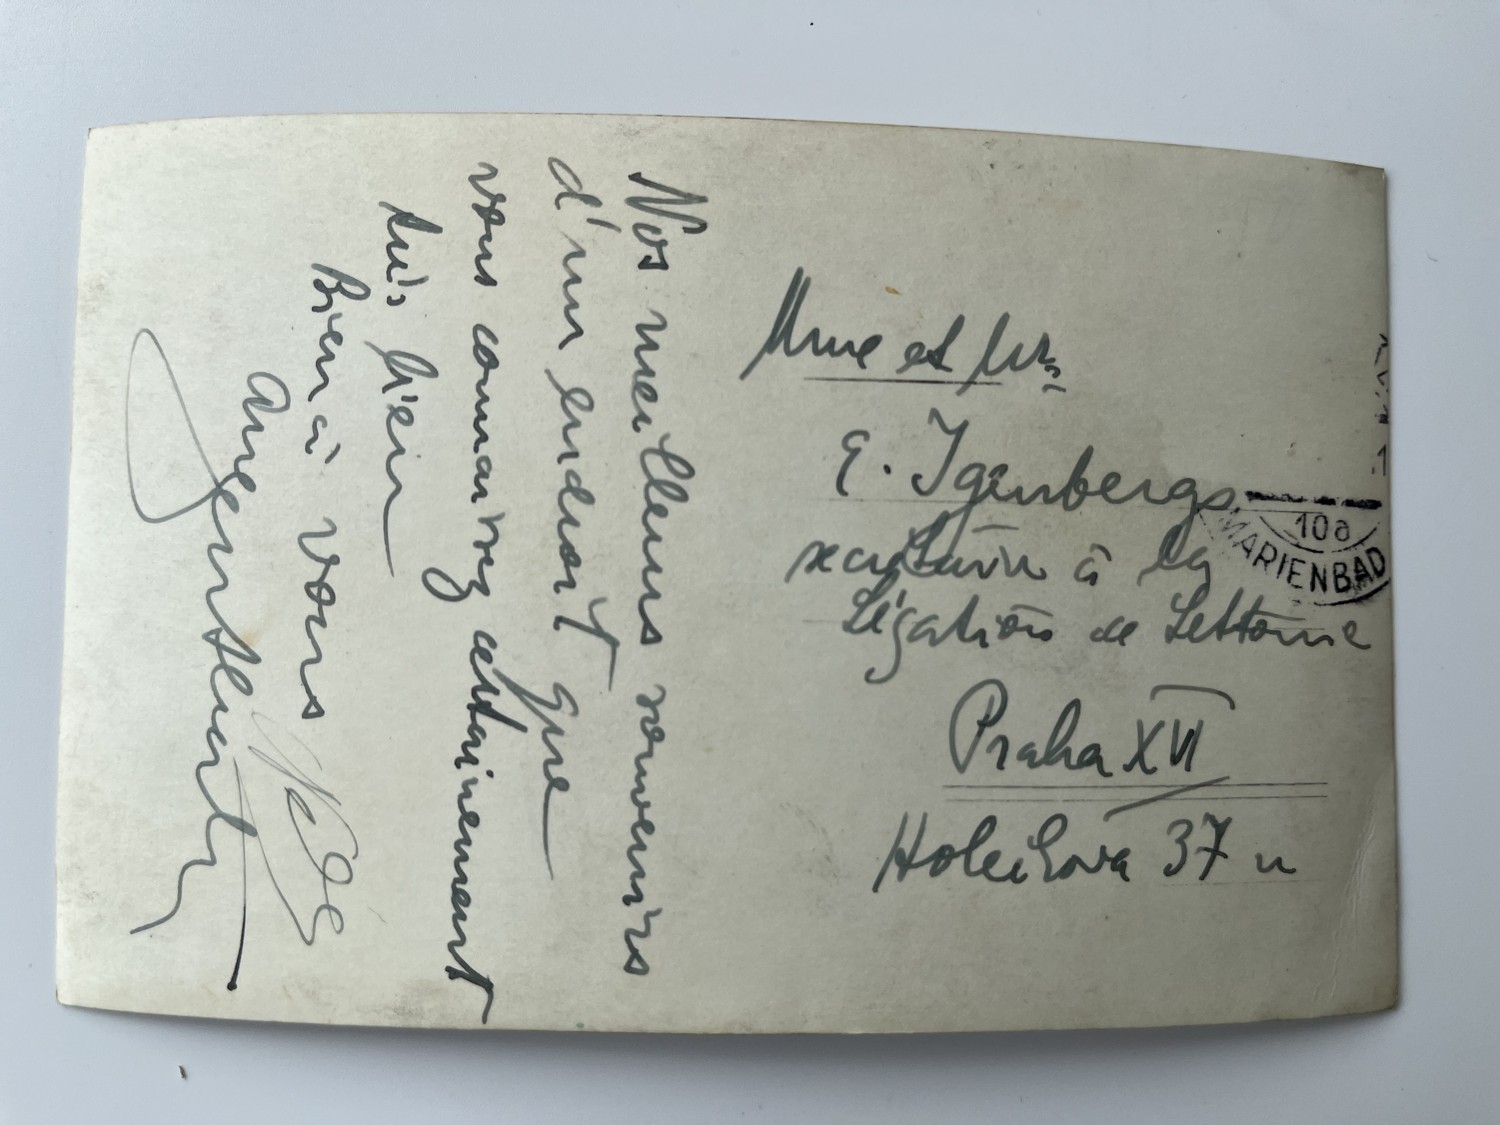 Nos meilleurs souvenirs
d'un endroit que
vous connaissez certainement
très bien
Bien à vous
Mme et Mr.
E. Igenbergs
secrétaire à la
Légation de Lettonie
Praha XVI
Holeckova 37 
10a
MARIENBAD